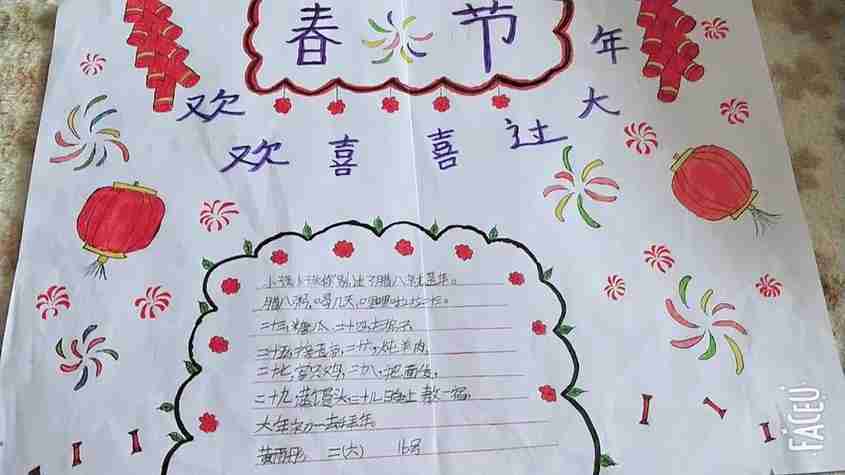 春节
欢欢喜喜过大年
小孩小孩你别,过了腊八就是年。
腊八粥,喝几天,哩哩啦啦二十三。
二十三,糖瓜,二十四,扫房子
二十五,豆腐,二十六,炖羊肉
二十七,宰公鸡,二十八,把面发,
二十九,蒸馒头,三十儿晚上熬一宿,
大年初一去拜年
黄雨 二(六) 16号
FACEU